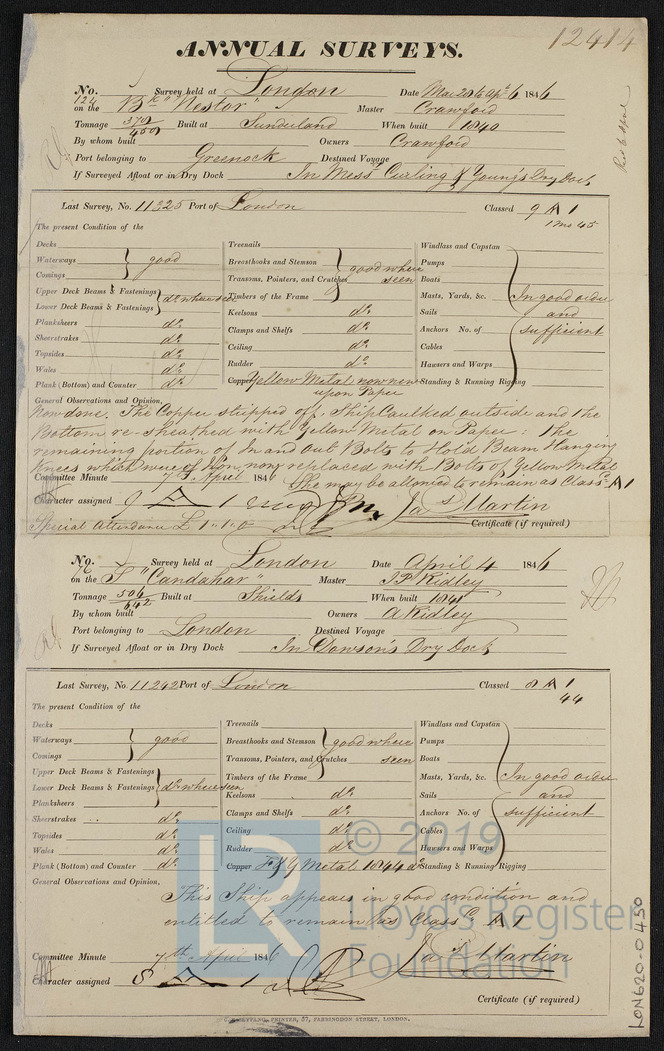 12414
ANNUAL SURVEYS.
No. 124 Survey held at London Date Mar 20 to Apl 6 1846
on the Bk "Nestor" Master Crawford
Tonnage 370/450 Built at Sunderland When built 1840
By whom built Owners Crawford
Port belonging to Greenock Destined Voyage
If Surveyed Afloat or in Dry Dock In Mess Curling & Young's Dry Dock
Last Survey, No. 11325 Port of London Classed 9 A 1
1 Mo 45
The present Condition of the
Decks Treenails Windlass and Capstan
Waterways good Breasthooks and Stemson good where Pumps
Comings Transoms, Pointers, and Crutches seen Boats
Upper Deck Beams & Fastenings do where seen Timbers of the Frame Masts, Yards, &c. In good order
Lower Deck Beams & Fastenings Keelsons do Sails and
Planksheers do Clamps and Shelfs do Anchors No. of sufficient
Sheerstrakes do Ceiling do Cables
Topsides do Rudder do Hawsers and Warps
Wales do Copper Yellow Metal now new Standing & Running Rigging
Plank (Bottom) and Counter do upon Paper
General Observations and Opinion,
Now done. The Copper stripped off. Ship Caulked outside and the
Bottom re-sheathed with Yellow Metal on Paper: The
remaining portion of In and out Bolts to Hold Beam Hanging
Knees which were of Iron, now replaced with Bolts of Yellow Metal
She may be allowed to remain as Classd A 1
Committee Minute 7th April 1846
Character assigned 9 A 1 Jas Martin
Special Attendance £1"1"0 Certificate (if required)
No. 76 Survey held at London Date April 4 1846
on the S "Candahar" Master J P Ridley
Tonnage 506/642 Built at Shields When built 1841
By whom built Owners A Ridley
Port belonging to London Destined Voyage
If Surveyed Afloat or in Dry Dock In Dowson's Dry Dock
Last Survey, No. 11242 Port of London Classed 8 A 1
44
The present Condition of the
Decks Treenails Windlass and Capstan
Waterways good Breasthooks and Stemson good where Pumps
Comings Transoms, Pointers, and Crutches seen Boats
Upper Deck Beams & Fastenings do where seen Timbers of the Frame Masts, Yards, &c. In good order
Lower Deck Beams & Fastenings Keelsons do Sails and
Planksheers
Sheerstrakes do Clamps and Shelfs do Anchors No. of sufficient
Topsides do Ceiling do Cables
Wales do Rudder do Hawsers and Warps
Plank (Bottom) and Counter do Copper F & Y Metal 1844 do Standing & Running Rigging
General Observations and Opinion,
This Ship appears in good condition and
entitled to remain as Classd A 1
Committee Minute 7th April 1846 Jas Martin
Character assigned 8 A 1
Certificate (if required)
PRINTER, 57, FARRINGDON STREET, LONDON.
LON620-0430
LR © 2019
Lloyd's Register
Foundation